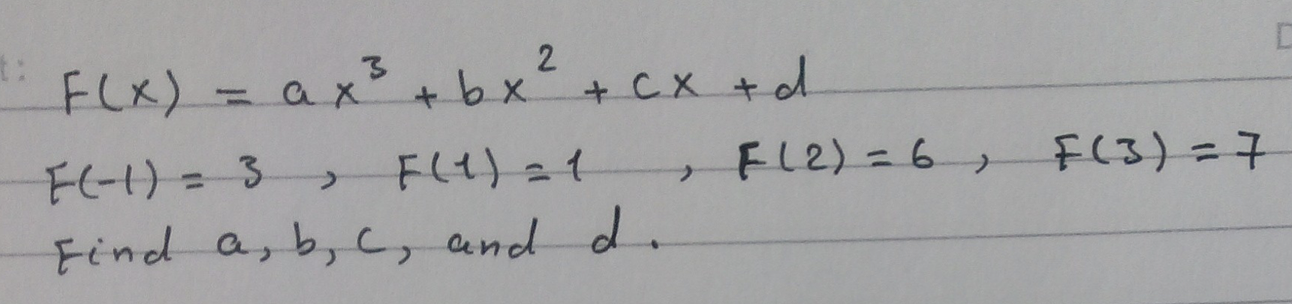 F(x) = ax³ + bx² + cx + d
F(-1) = 3 , F(1) = 1 , F(2) = 6 , F(3) = 7
Find a, b, c, and d.